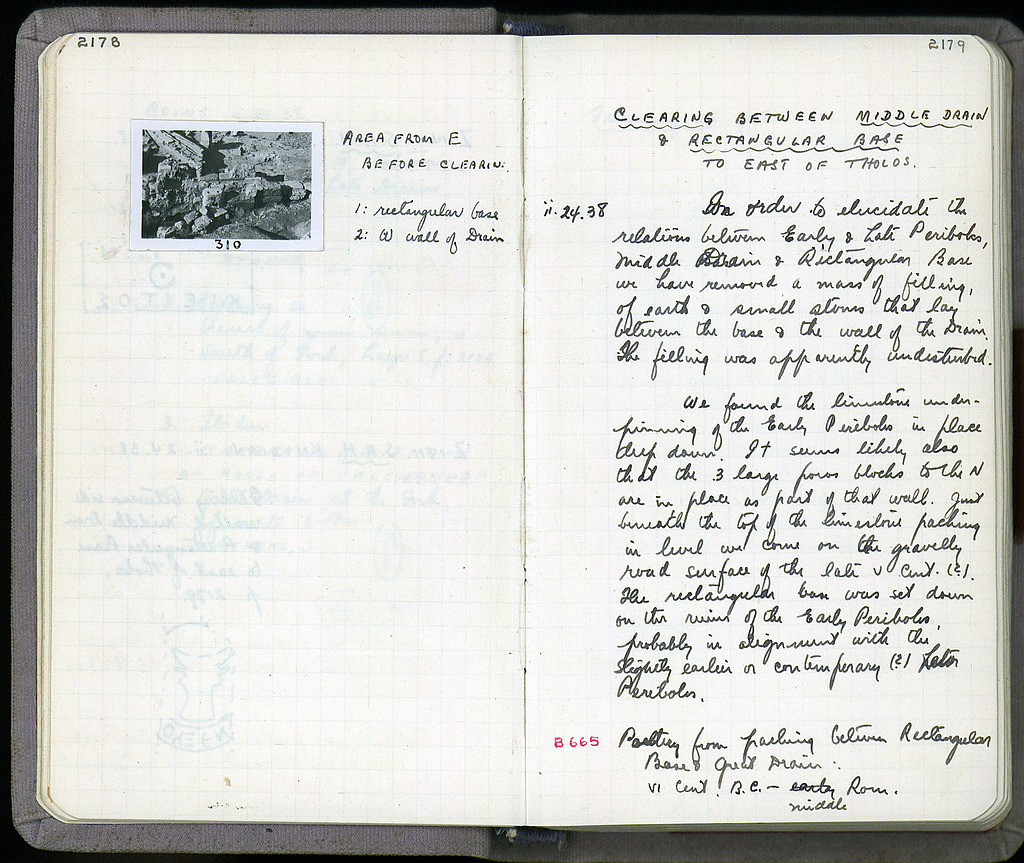 2178
310
AREA FROM E
BEFORE CLEARIN:
1: rectangular base
2: W wall of Drain
2179
CLEARING BETWEEN MIDDLE DRAIN
& RECTANGULAR BASE
TO EAST OF THOLOS.
ii.24.38
In order to elucidate the
relations between Early & Late Peribolos,
Middle Drain & Rectangular Base
we have removed a mass of filling,
of earth & small stones that lay
between the base & the wall of the Drain.
The filling was apparently undisturbed.
We found the limestone under-
pinning of the Early Peribolos in place
deep down. It seems likely also
that the 3 large poros blocks to the N
are in place as part of that wall. Just
beneath the top of the limestone packing
in level we come on the gravelly
road surface of the late V Cent. (?).
The rectangular base was set down
on the ruins of the Early Peribolos,
probably in alignment with the
slightly earlier or contemporary (?) Later
Peribolos.
B 665
Pottery from packing between Rectangular
Base & Great Drain:
VI Cent. B.C. – early Rom.
middle